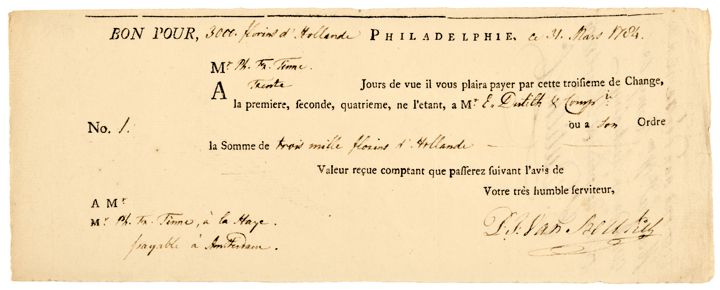 BON POUR, 3000. florins d'Hollande PHILADELPHIE, ce 31. Mars 1784.
Mr. Ph. Fr. Tinne.
A trente Jours de vue il vous plaira payer par cette troisieme de Change,
la premiere, seconde, quatrieme, ne l'etant, a Mr E. Dutilh & Comp.ie
No. 1. ou a son Ordre
la Somme de trois mille florins d'Hollande
Valeur reçue comptant que passerez suivant l'avis de
Votre très humble serviteur,
A Mr.
Mr. Ph. Fr. Tinne, à la Haye. P. J. Van Berckel
payable à Amsterdam.